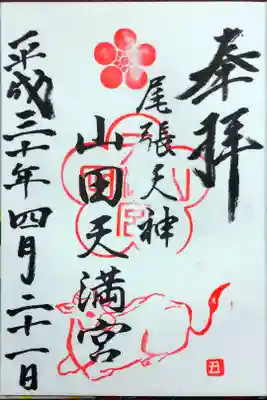 奉拝
尾張天神
山田天満宮
平成三十年四月二十一日
丑